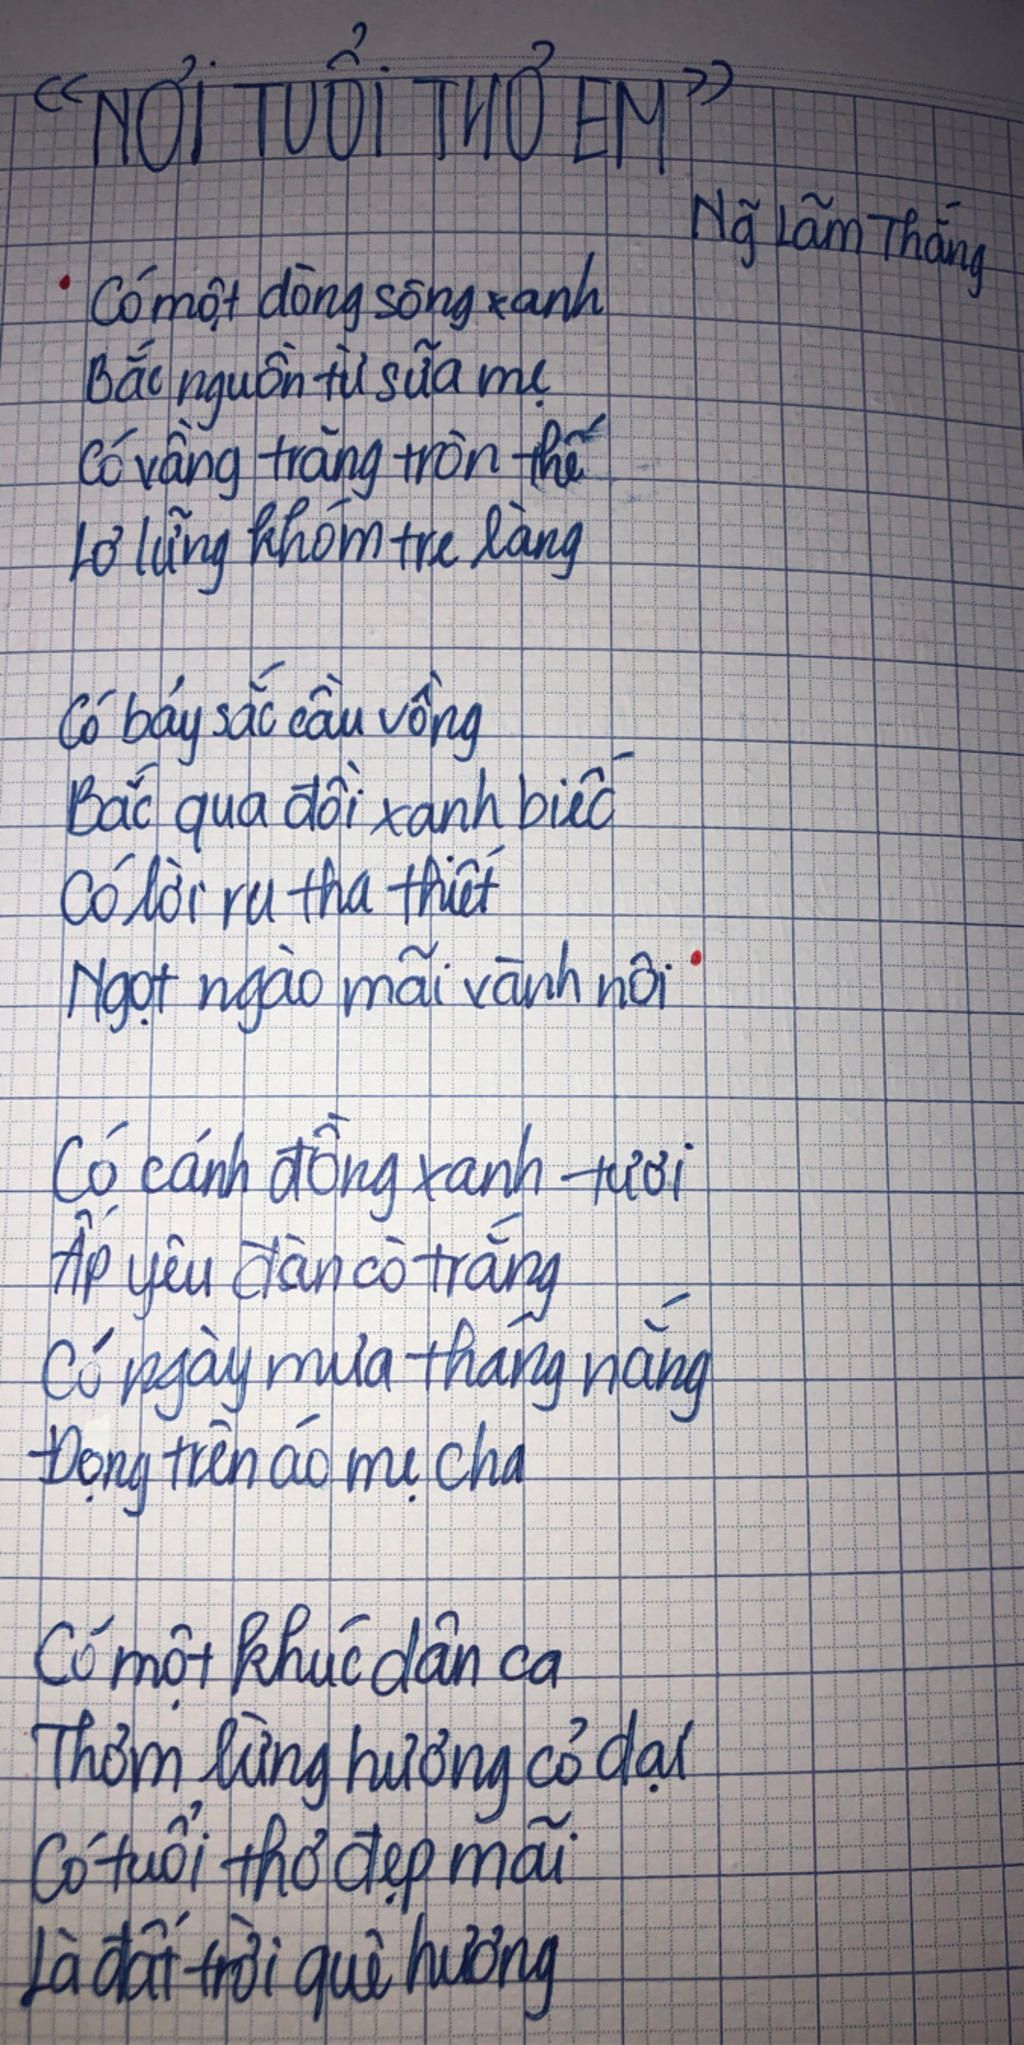 “NƠI TUỔI THƠ EM”
Ng̃ Lãm Thắng
Có một dòng sông xanh
Bắc nguồn từ sữa mẹ
Có vầng trăng tròn thế
Lơ lững khóm tre làng
Có bảy sắc cầu vồng
Bắc qua đồi xanh biếc
Có lời ru tha thiết
Ngọt ngào mãi vành nôi
Có cánh đồng xanh tươi
Ấp yêu đàn cò trắng
Có ngày mưa tháng nắng
Đọng trên áo mẹ cha
Có một khúc dân ca
Thơm lừng hương cỏ dại
Có tuổi thơ đẹp mãi
Là đất trời quê hương